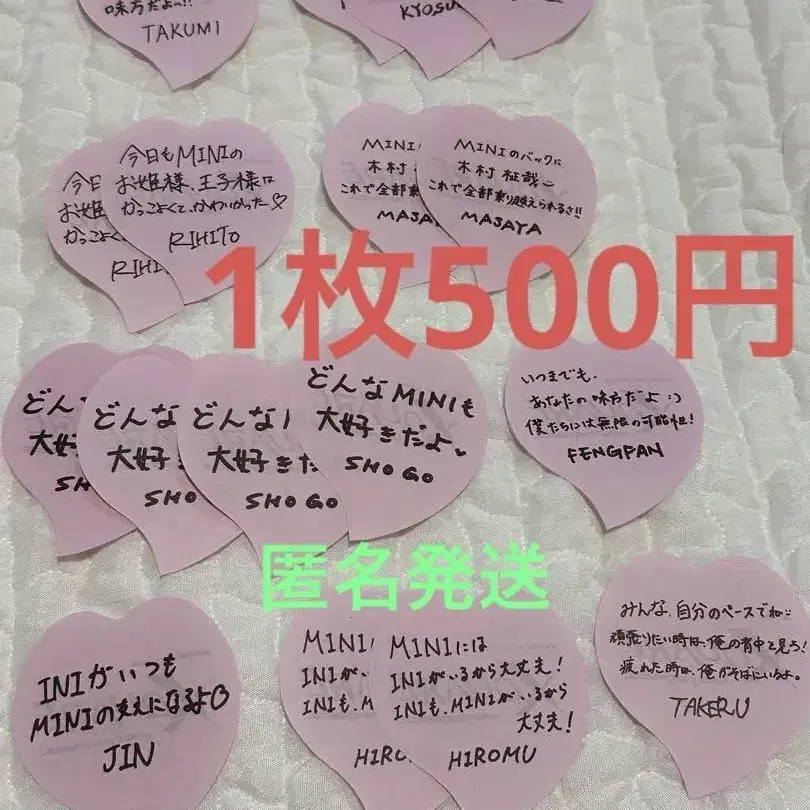 味方だよ〜!!
TAKUMI
KYOSU
今日
お姫
かっこよく
RIHI
今日もMINIの
お姫様、王子様は
かっこよくて、かわいかった♡
RIHITO
MINI
木村
これで全部乗
MASA
MINIのバックに
木村 柾哉
これで全部乗り越えられるさ!!
MASAYA
1枚500円
どん
大好
SH
どんな
大好き
SHO
どんな
大好きだ
SHOGO
どんなMINIも
大好きだよ。
SHOGO
いつまでも、
あなたの味方だよ:)
僕たちには無限の可能性!
FENGFAN
匿名発送
INIがいつも
MINIの支えになるよ
JIN
MINI
INIが
INIも、M
HIRO
MINIには
INIがいるから大丈夫!
INIも、MINIがいるから
大丈夫!
HIROMU
みんな、自分のペースでね
頑張りたい時は、俺の背中を見ろ!
疲れた時は、俺がそばにいるよ。
TAKERU